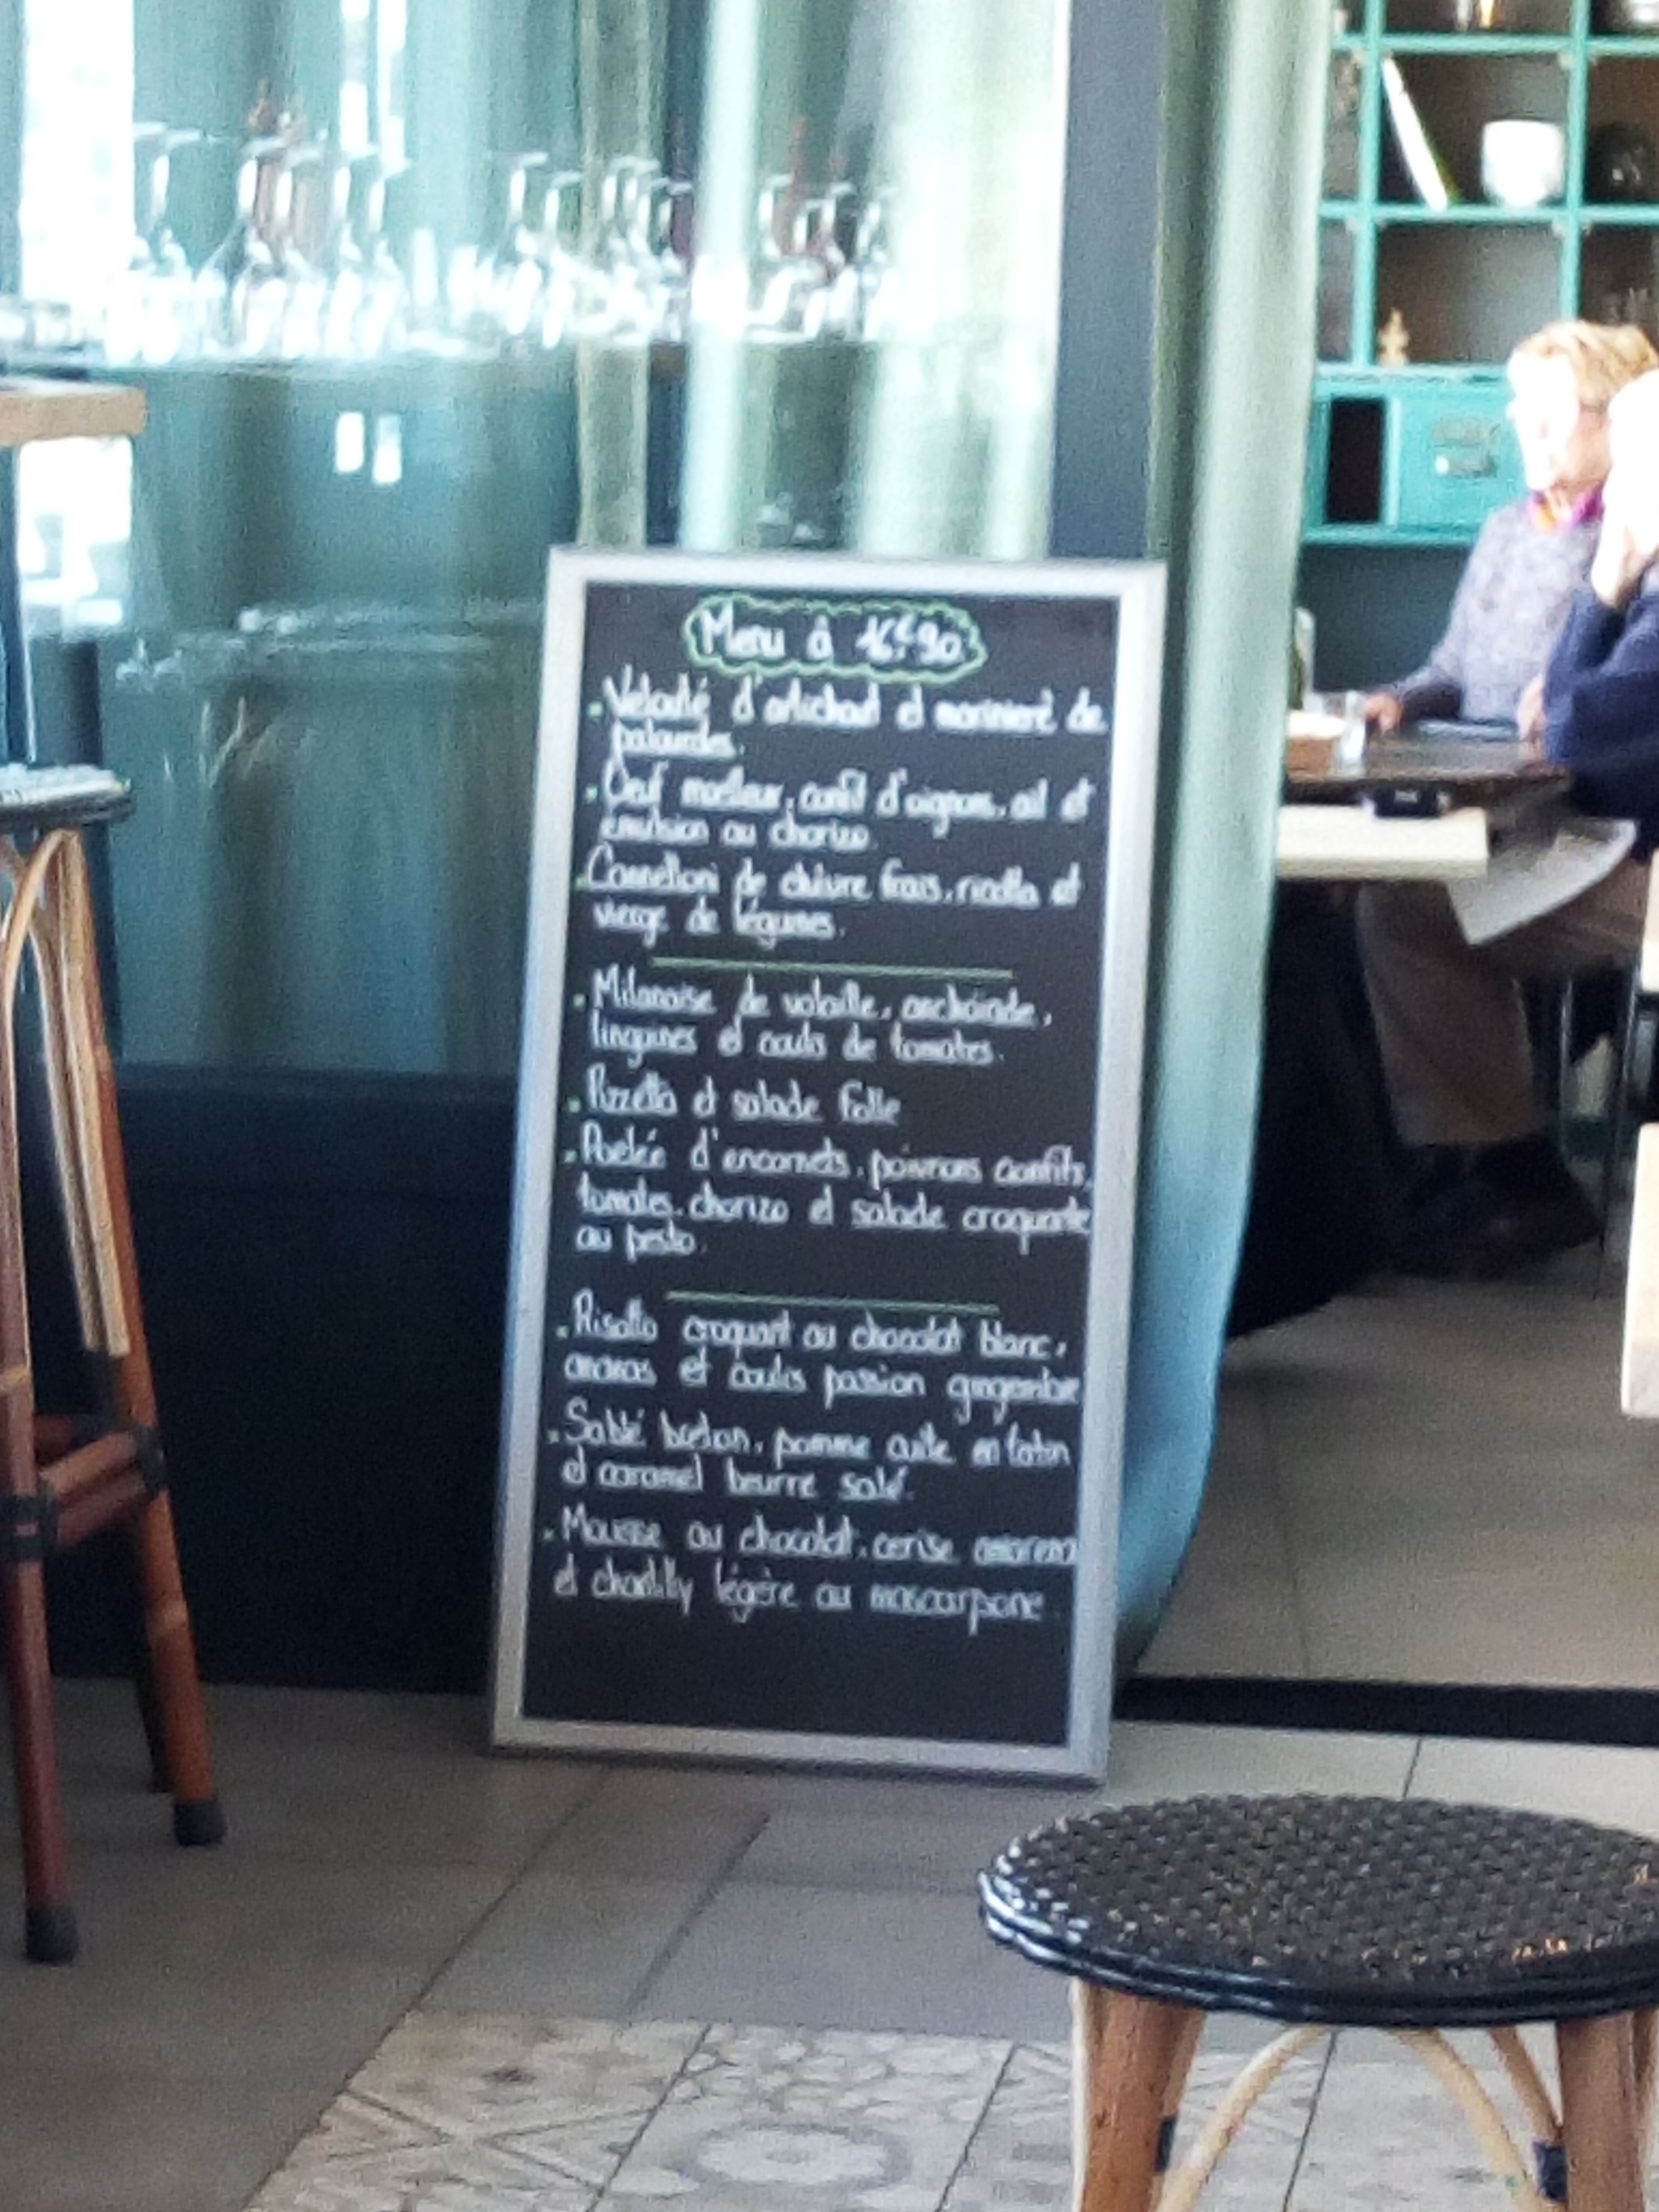 Menu à 16€90
. Velouté d'artichaut et marinière de
palourdes.
. Oeuf moelleux, confit d'oignons, ail et
émulsion au chorizo.
. Cannelloni de chèvre frais, ricotta et
vierge de légumes.
. Milanaise de volaille, anchoïade,
linguines et coulis de tomates.
. Pizzetta et salade folle
. Poêlée d'encornets, poivrons confits,
tomates, chorizo et salade croquante
au pesto.
. Risotto croquant au chocolat blanc,
ananas et coulis passion gingembre
. Sablé breton, pomme cuite en tatin
et caramel beurre salé.
. Mousse au chocolat, cerise amarena
et chantilly légère au mascarpone.